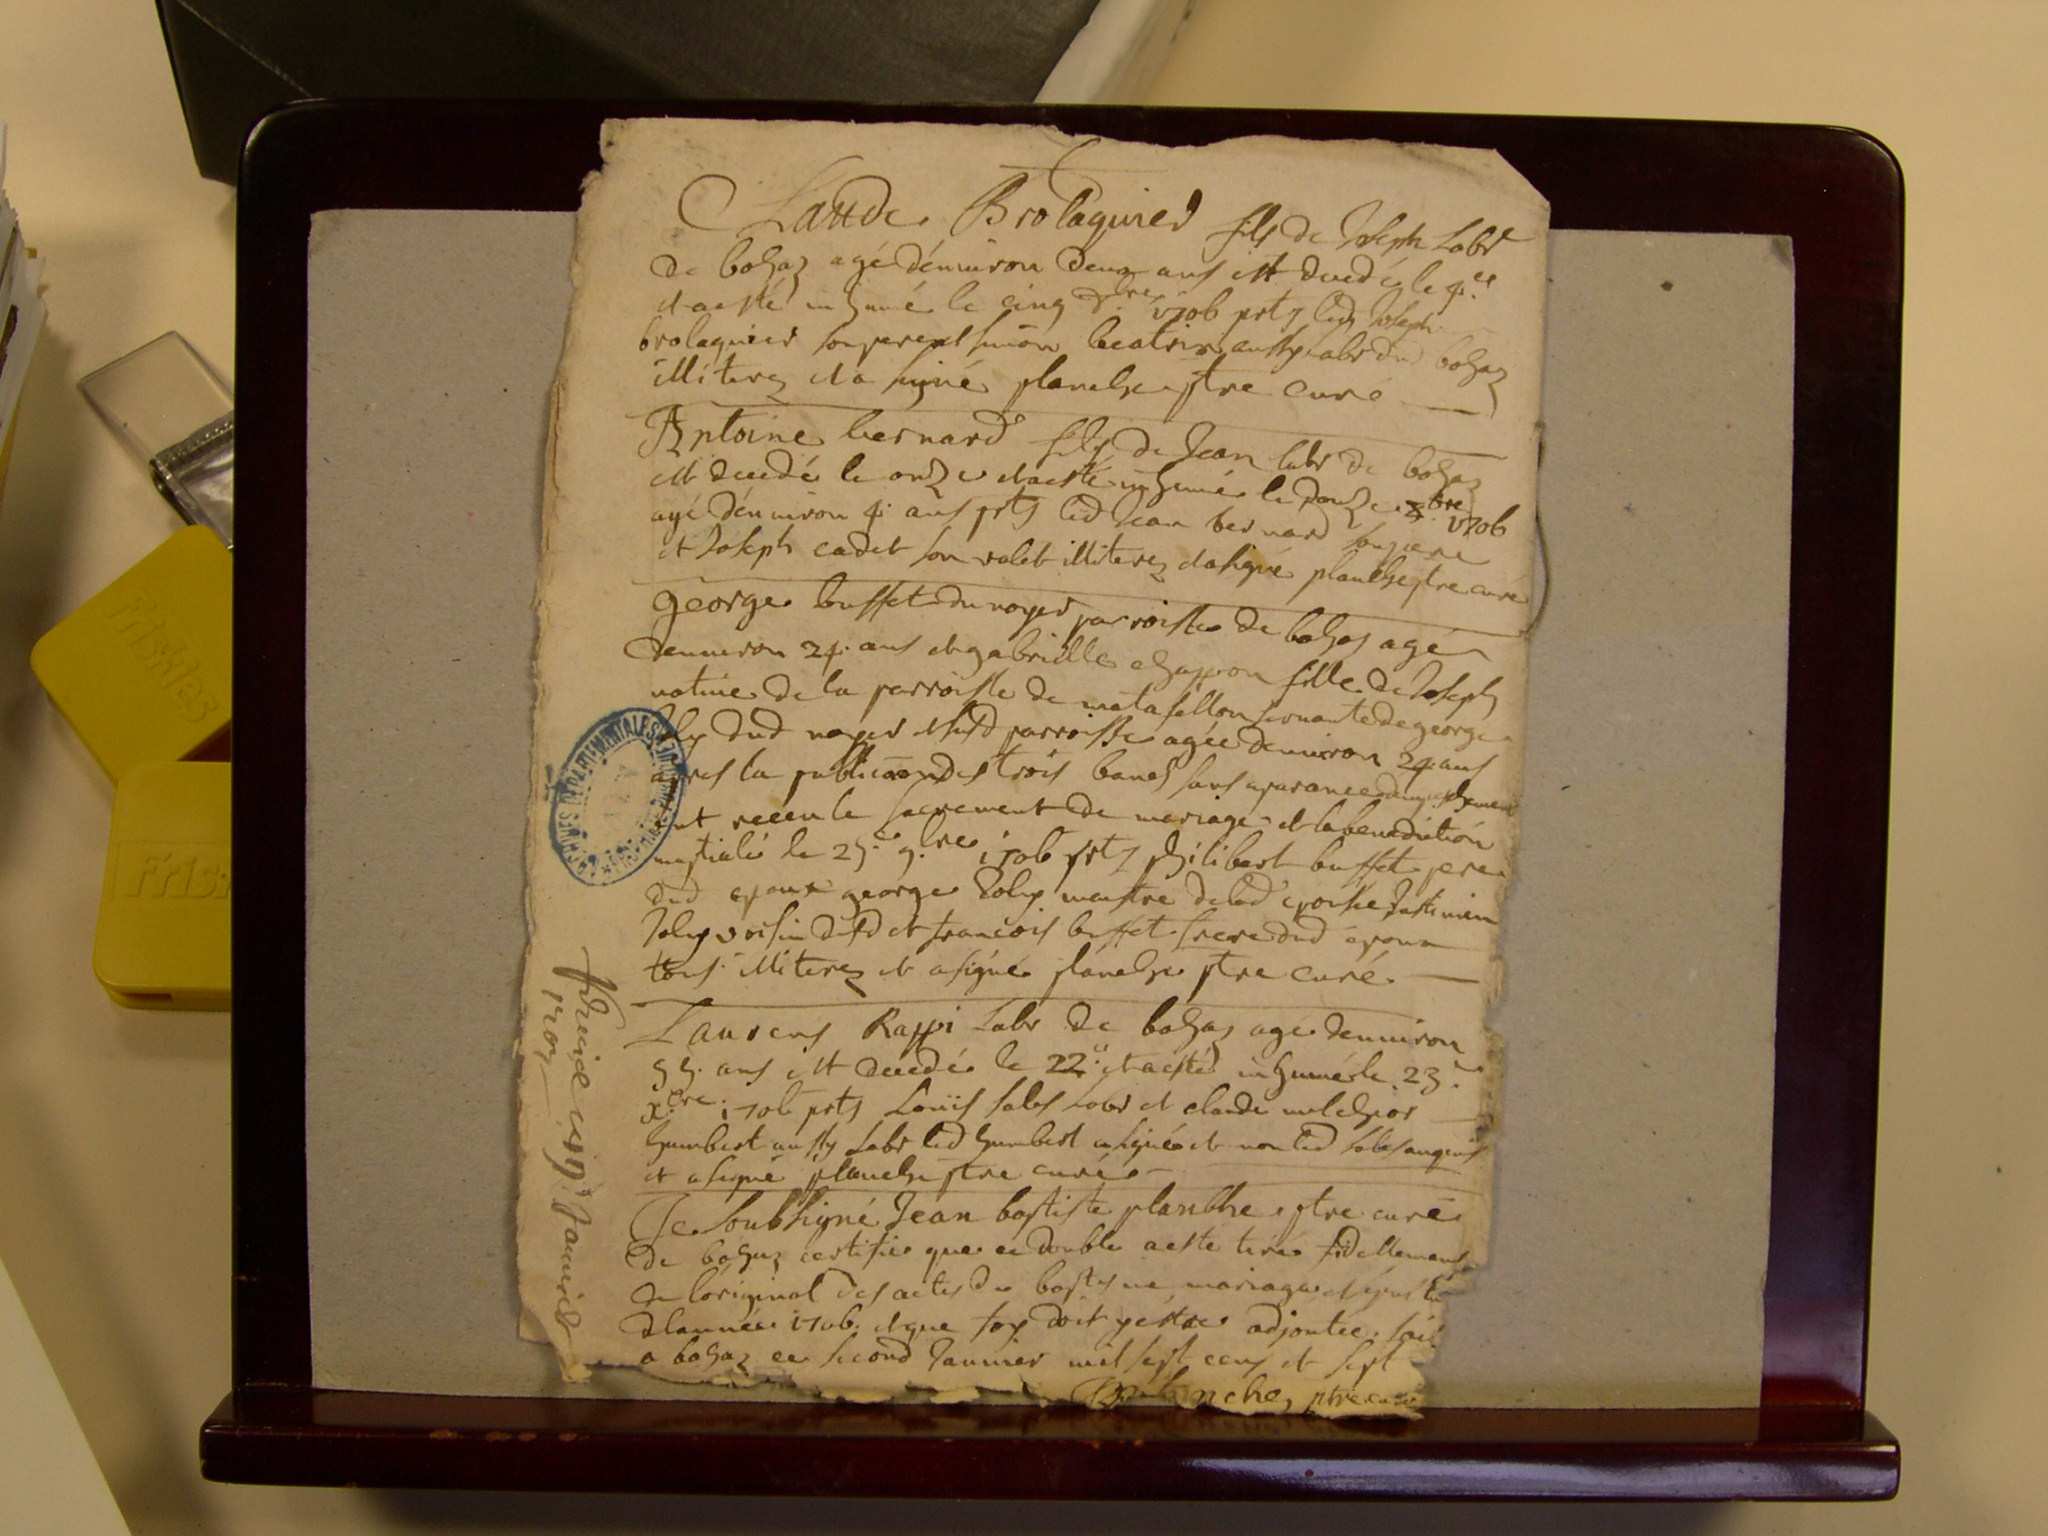 Claude Brolaquier fils de Joseph Labr
de bohaz agé d'environ deux ans est decedé le 4.e
et a esté inhumé le cinq bre 1706 pnts led Joseph
brolaquier son pere et simon beatrix aussy labr dud bohaz
illiterez et a signé planche ptre curé
Antoine bernard fils de Jean labr de bohaz
est decedé le onze et a esté inhumé le douze bre 1706
agé d'environ 4. ans pnts led Jean bernard son pere
et Joseph cadet son valet illiterez et a signé planche ptre curé
George buffet du noyer parroisse de bohas agé
d'environ 24. ans et gabrielle chappon fille de Joseph
native de la parroisse de matafellon servante de george
Joly dud noyer susd parroisse agée d'environ 24 ans
apres la publicaon des trois bancs sans aparance d'empechement
ont receu le sacrement de mariage et la benediction
nuptiale le 25.e 9.bre 1706 pnts philibert buffet pere
dud epoux george Joly maistre de lad epouse
Joly voisin dusd et francois buffet frere dud epoux
tous illiterez et a signé planche ptre curé
Laurens Rappi labr de bohaz agé d'environ
55. ans est decedé le 22.e et a esté inhumé le 23.e
x.bre 1706 pnts Louis labr et claude melchior
humbert aussy labr led humbert a signé et non led enquis
et a signé planche ptre curé
Je soubsigné Jean baptiste planche ptre curé
de bohaz certifie que ce double a esté tiré fidellement
de l'original des actes de baptesme, mariage et
de l'année 1706. et que foy doit y estre adjoutée. fait
a bohaz ce second Janvier mil sept cens et sept
planche, ptre curé
Janvier
1707
ARCHIVES DÉPARTEMENTALES
Friskies
Frisk